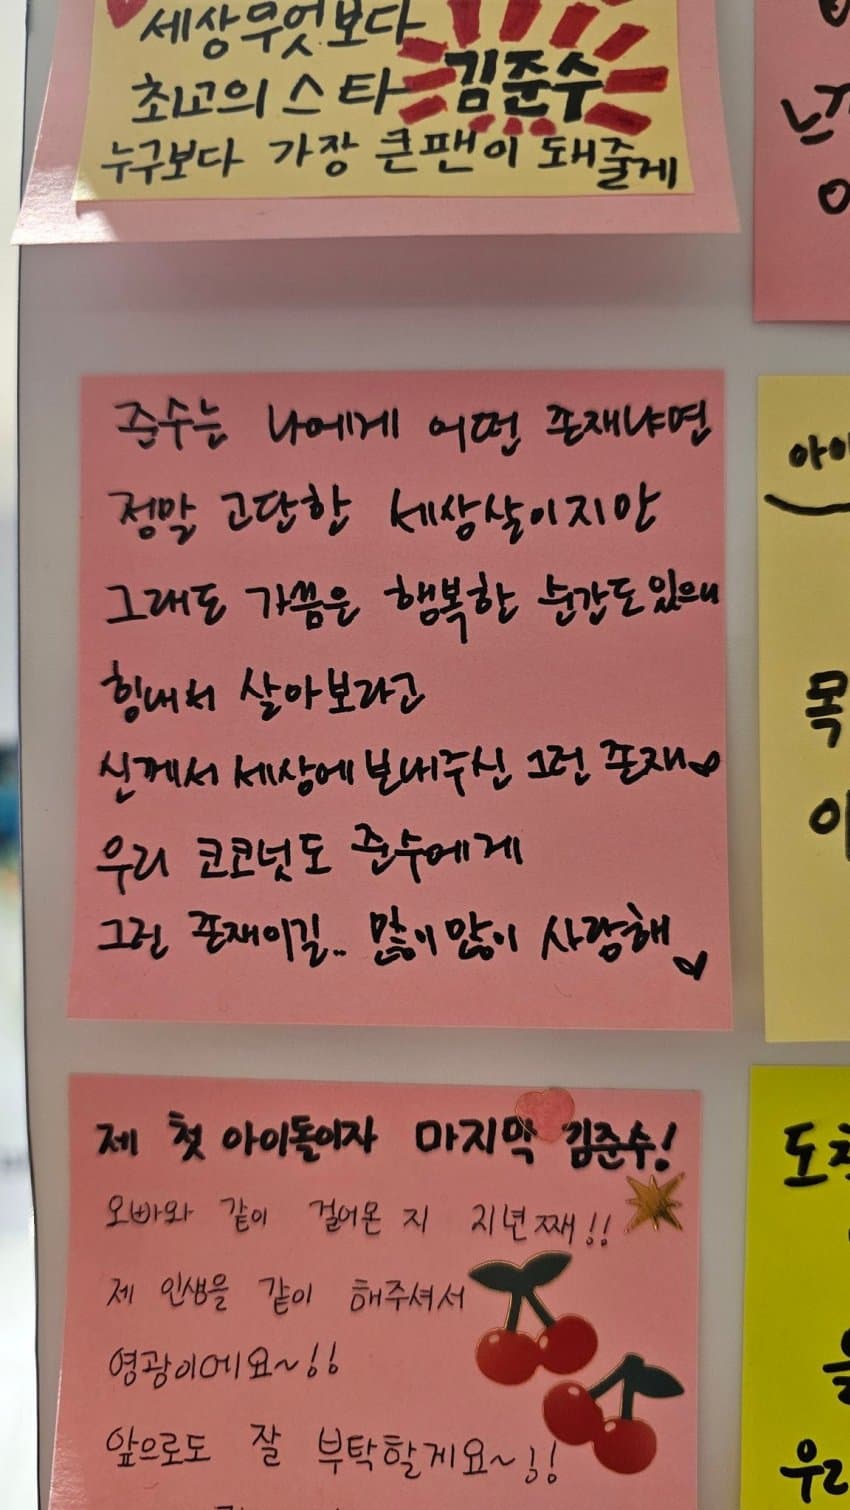 세상무엇보다
최고의 스타 김준수
누구보다 가장 큰팬이 돼줄게
준수는 나에게 어떤 존재냐면
정말 고단한 세상살이지만
그래도 가끔은 행복한 순간도 있으니
힘내서 살아보라고
신께서 세상에 보내주신 그런 존재♡
우리 코코넛도 준수에게
그런 존재이길.. 많이많이 사랑해♡
제 첫 아이돌이자 마지막 김준수!
오빠와 같이 걸어온 지 21년째!!
제 인생을 같이 해주셔서
영광이에요~!!
앞으로도 잘 부탁할게요~!!
아이
목
이
도착
을
우리